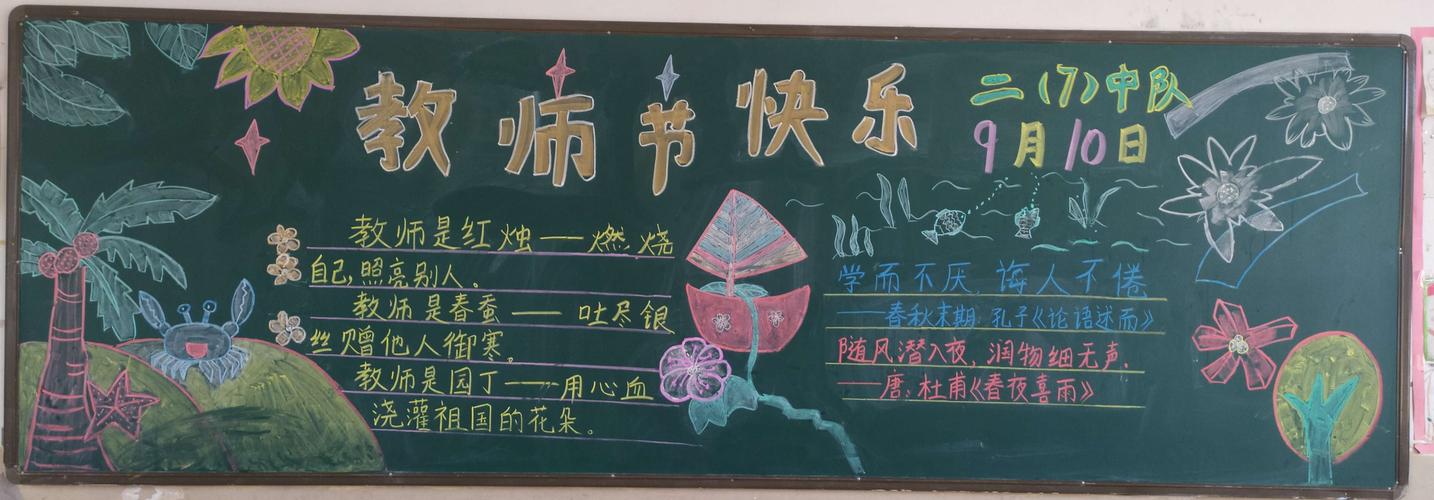 教师节快乐
二(7)中队
9月10日
教师是红烛——燃烧
自己,照亮别人。
教师是春蚕——吐尽银
丝赠他人御寒。
教师是园丁——用心血
浇灌祖国的花朵。
学而不厌,诲人不倦
——春秋末期:孔子《论语述而》
随风潜入夜,润物细无声.
——唐:杜甫《春夜喜雨》